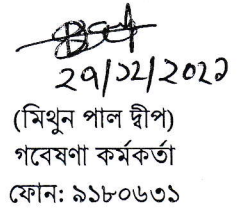 ২৭/১২/২০২১
(মিথুন পাল দ্বীপ)
গবেষণা কর্মকর্তা
ফোন: ৯১৮০৬৩১